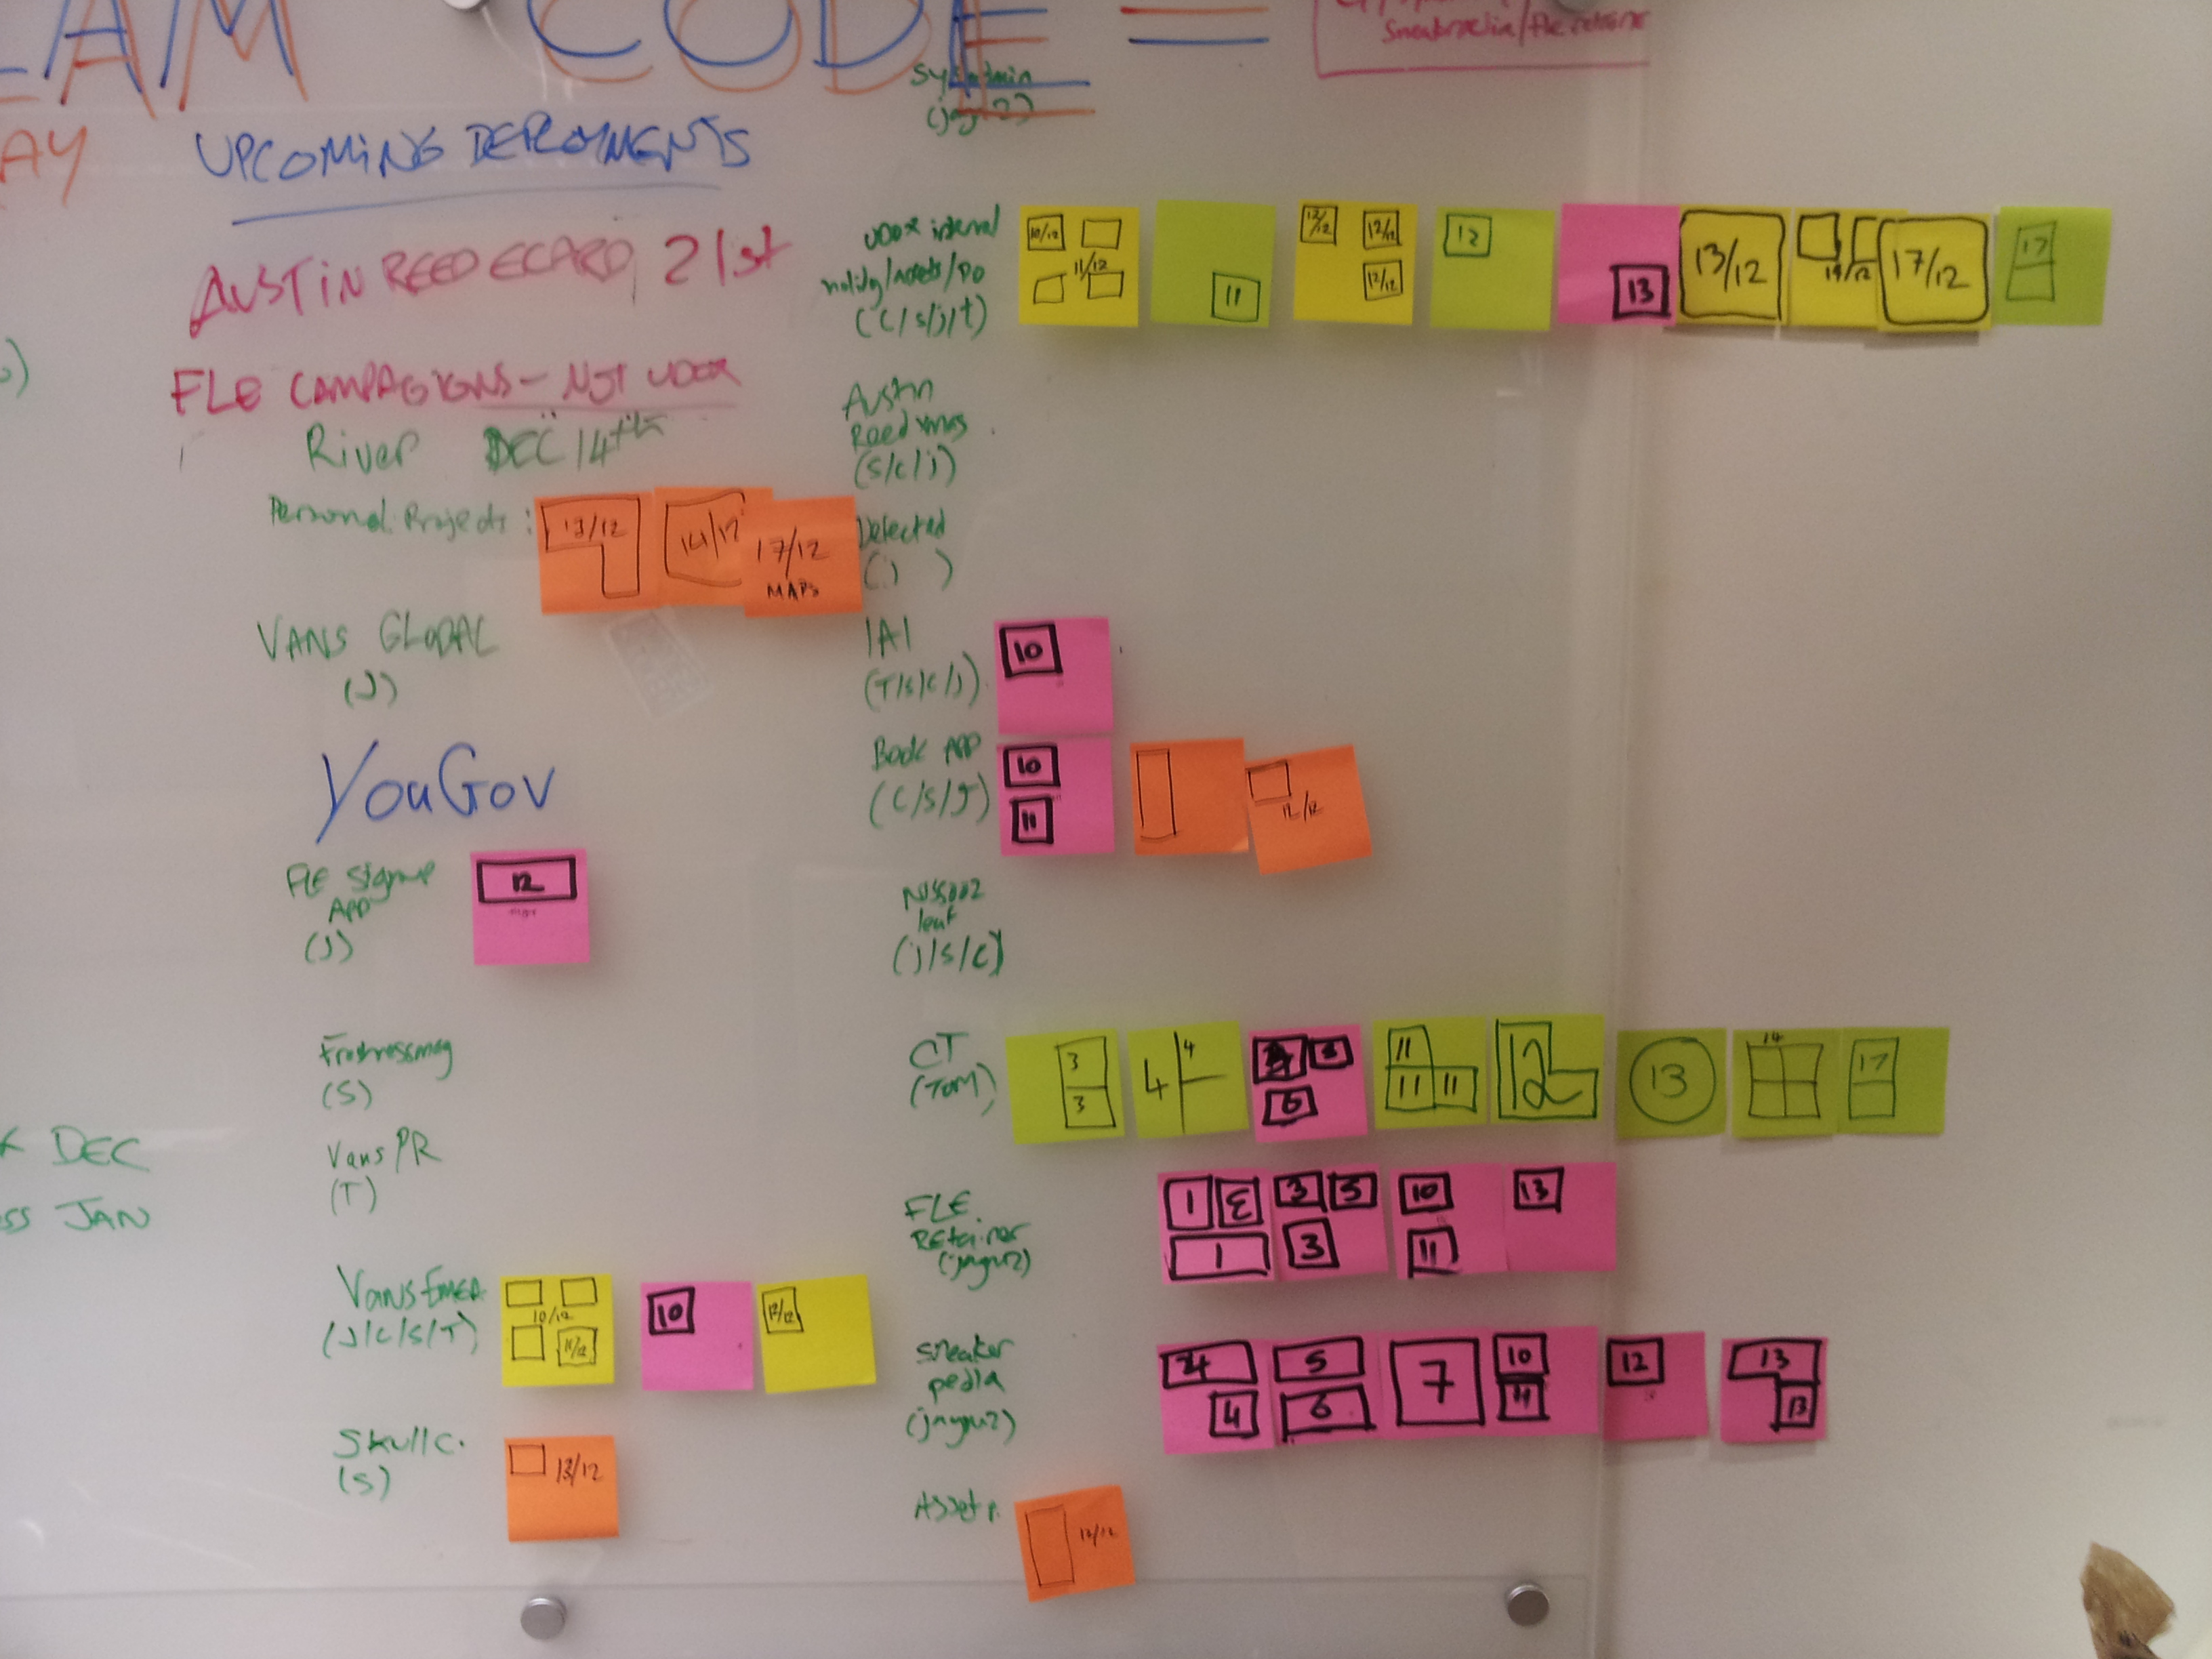 EAM CODE =
AY
Sneakpaedia/fle retainer
Sysadmin
UPCOMING DEPLOYMENTS
AUSTIN REED ECARD, 21st
FLE CAMPAGIGNS - NOT UDOX
River DEC 14th
Personal Projects:
13/12
14/12
17/12
MAPS
VANS GLOBAL
(J)
YouGov
FLE Signup
APP
(J)
12
(S)
Vans PR
(T)
DEC
SS JAN
Vans Emea
(J/C/S/T)
10/12
11/12
10
12/12
Skullc.
(S)
13/12
UDOX internal
(C/S/j/t)
10/12
11/12
11
12/12
12/12
12/12
12
13
13/12
14/12
17/12
17
Austin
Reed xmas
(S/C/j)
IAI
(T/S/C/J)
10
Book APP
(C/S/J)
10
11
12/12
leaf
(j/S/C)
CT
(TOM)
3
3
4
4
6
11
11 11
12
13
14
17
FLE
REtainer
1
1
3
3
10
11
13
Sneaker
pedia
4
5
6
7
10
11
12
13
13
Asset
12/12